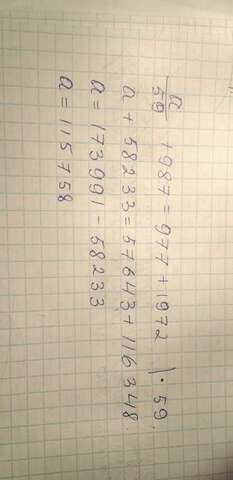 a/59 + 987 = 977 + 1972 | · 59
a + 58233 = 57643 + 116348
a = 173991 - 58233
a = 115758